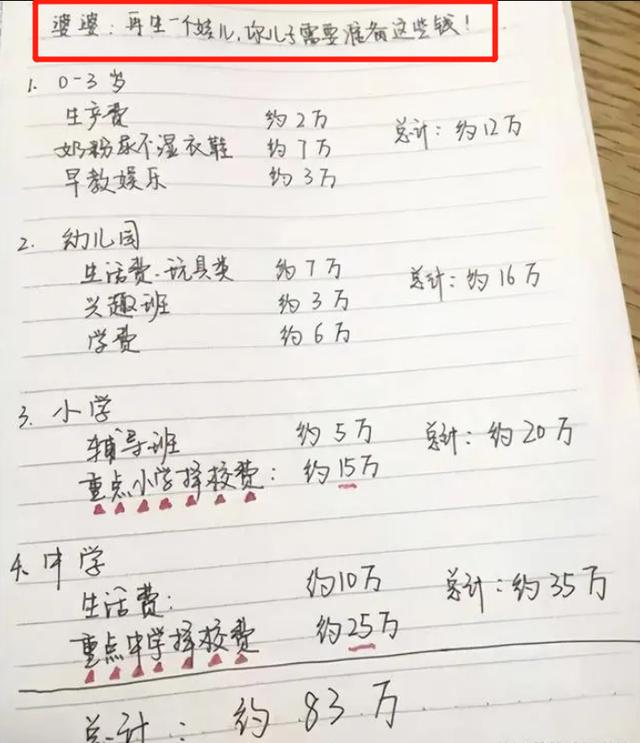 婆婆：再生一个娃儿，你儿子需要准备这些钱！
1. 0-3岁
生产费 约2万
奶粉尿不湿衣鞋 约7万 总计：约12万
早教娱乐 约3万
2. 幼儿园
生活费.玩具类 约7万 总计：约16万
兴趣班 约3万
学费 约6万
3. 小学
辅导班 约5万 总计：约20万
重点小学择校费：约15万
4. 中学
生活费： 约10万 总计：约35万
重点中学择校费 约25万
总计：约83万